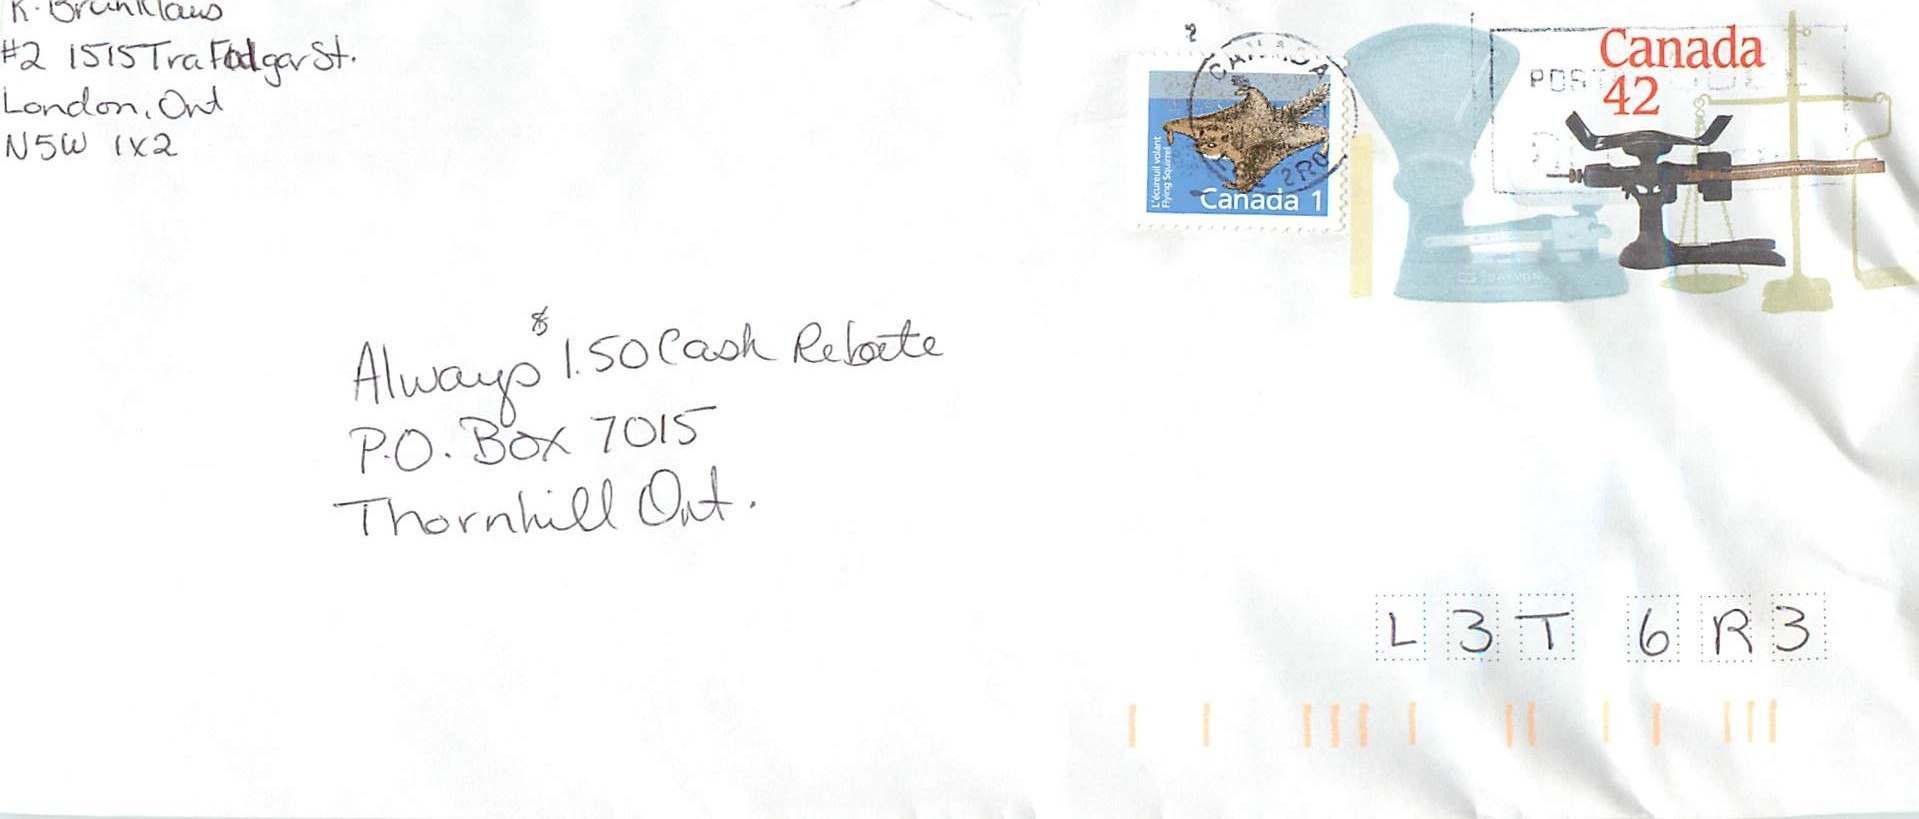 K. Brunklaus
#2 1515 Trafalgar St.
London, Ont
N5W 1X2
CANADA
2R0
L'écureuil volant
Flying Squirrel
Canada 1
Canada
42
POST
Always $1.50 Cash Rebate
P.O. Box 7015
Thornhill Ont.
L3T 6R3